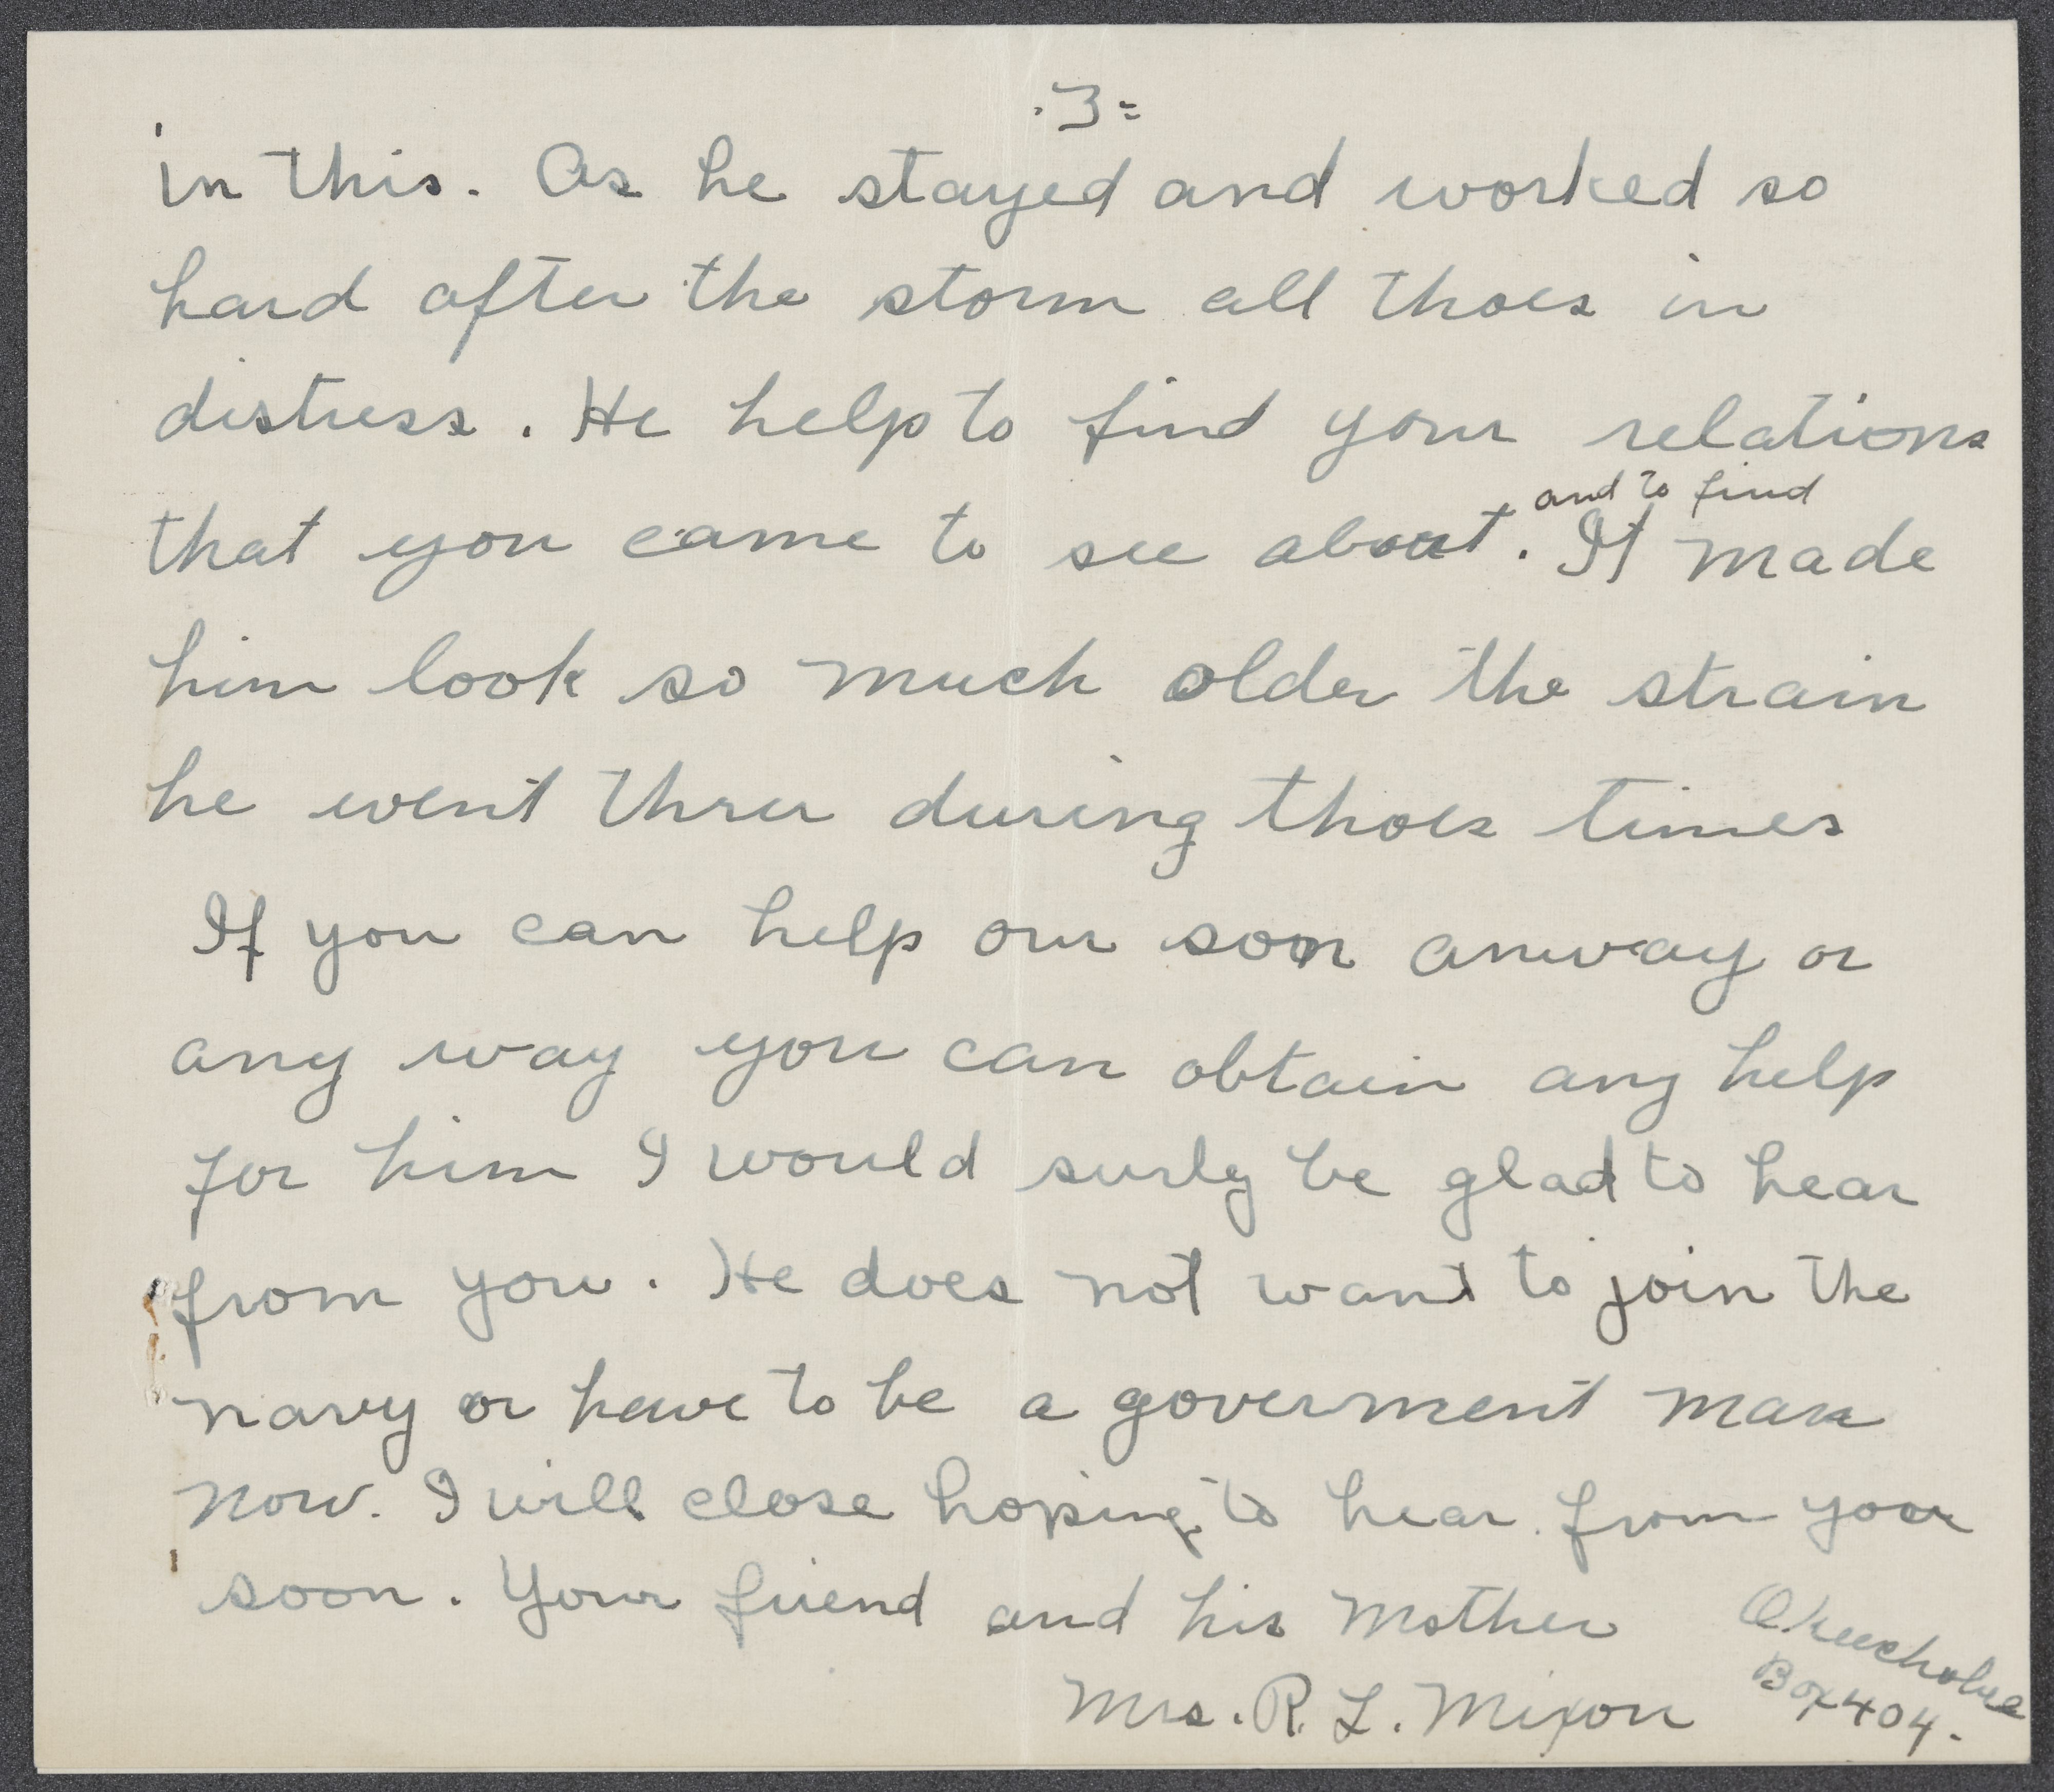 .3=
in this. As he stayed and worked so
hard after the storm all thoes in
distress. He help to find your relations
and to find
that you came to see about. It made
him look so much older the strain
he went thru during thoes times
If you can help our son anway or
any way you can obtain any help
for him I would surly be glad to hear
from you. He does not want to join the
navy or have to be a goverment man
now. I will close hoping to hear from you
soon. Your friend and his Mother
Okeechobee
Box 404.
Mrs. R. L. Mixon